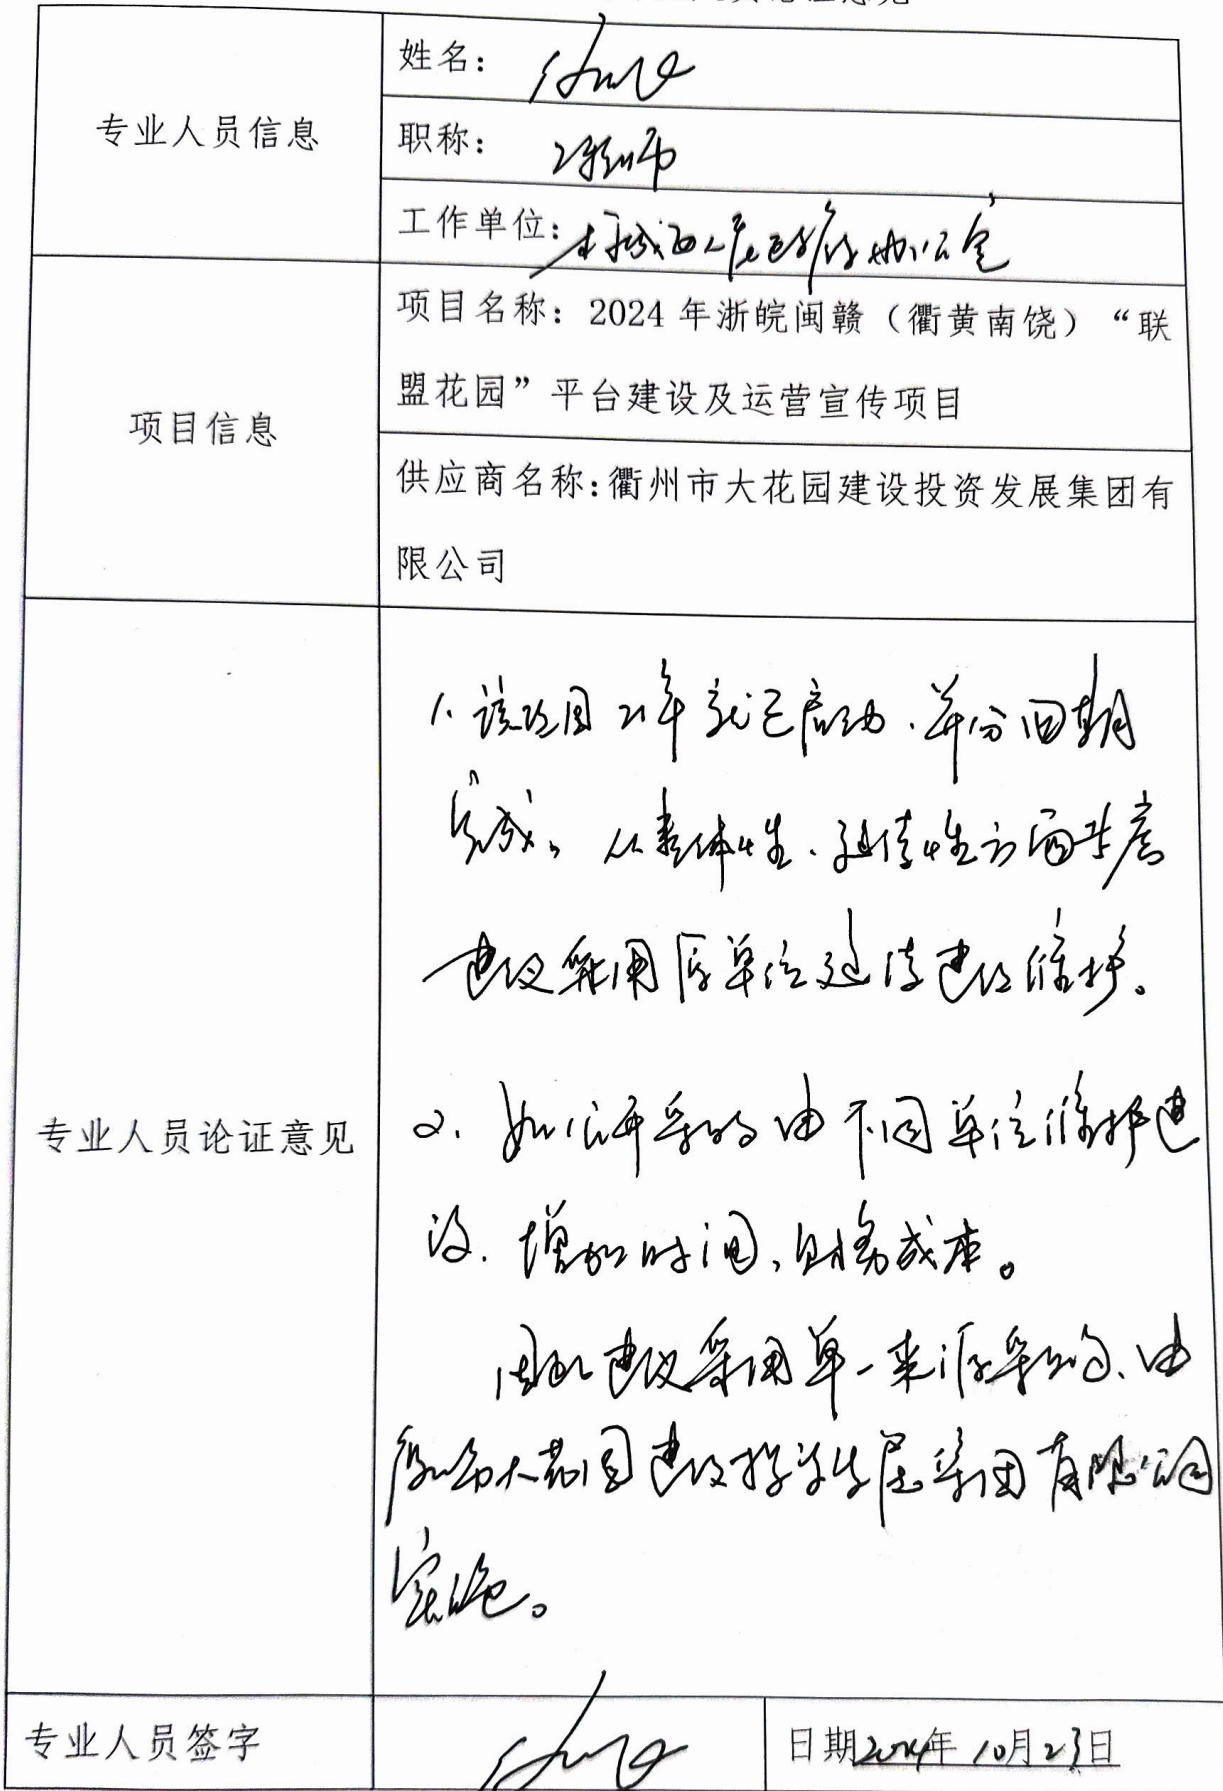 专业人员信息
姓名：
职称：工程师
工作单位：
项目信息
项目名称：2024 年浙皖闽赣（衢黄南饶）“联
盟花园”平台建设及运营宣传项目
供应商名称：衢州市大花园建设投资发展集团有
限公司
专业人员论证意见
1. 该项目21年就已启动、并分四期
完成。从整体性、延续性方面考虑
建议采用原单位延续建设维护。
2. 如公开采购由不同单位维护建
设、增加时间、财务成本。
因此建议采用单一来源采购、由
衢州市大花园建设投资发展集团有限公司
实施。
专业人员签字
日期2024年 10月23日